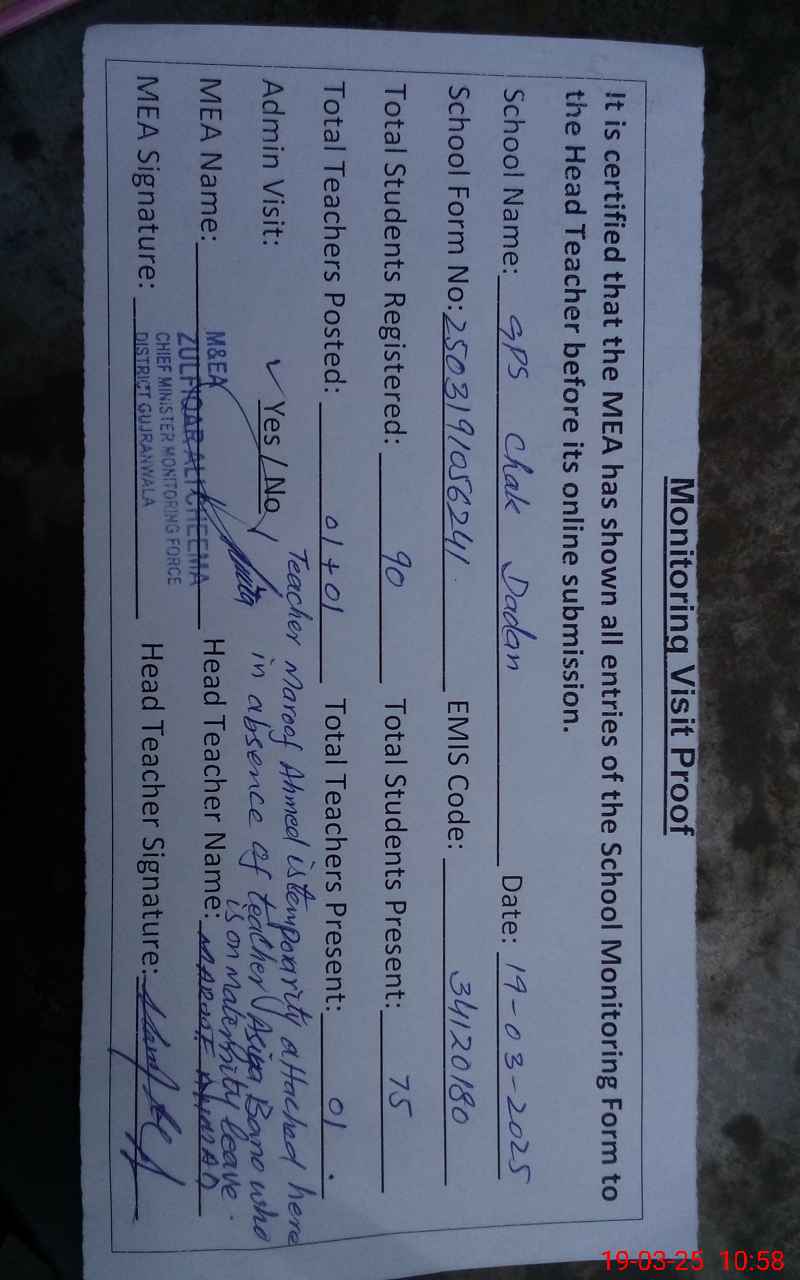 Monitoring Visit Proof
It is certified that the MEA has shown all entries of the School Monitoring Form to
the Head Teacher before its online submission.
School Name: GPS Chak Dadan Date: 19-03-2025
School Form No: 2503191056241 EMIS Code: 34120180
Total Students Registered: 90 Total Students Present: 75
Total Teachers Posted: 01+01 Total Teachers Present: 01
Teacher Maroof Ahmed is temporarily attached here
Admin Visit: ✓ Yes / No in absence of teacher Asiya Bano who
is on maternity leave.
MEA Name: Head Teacher Name: MAROOF AHMAD
M&EA
ZULFIQAR ALI CHEEMA
CHIEF MINISTER MONITORING FORCE
DISTRICT GUJRANWALA
MEA Signature: Head Teacher Signature:
19-03-25 10:58